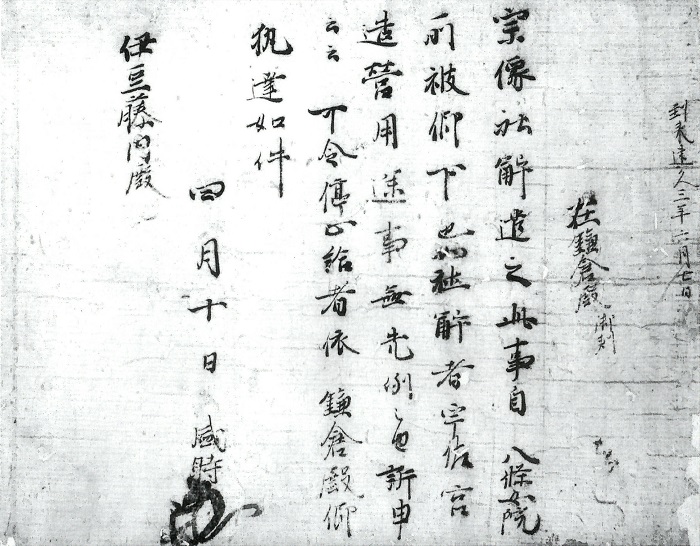 到来建久三年六月七日
在鎌倉殿御判
宗像社解遣之此事自 八條院
所被仰下也如社解者宇佐宮
造營用途事無先例之由訴申
云云 可令停止給者依 鎌倉殿仰
執達如件
四月十日 盛時
伊豆藤内殿